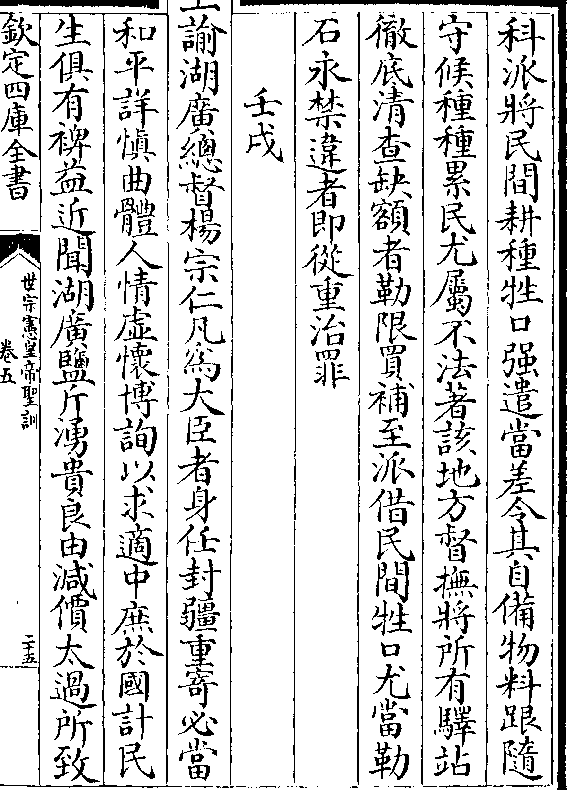 科派將民間耕種牲口强遣當差令其自備物料跟隨
守候種種累民尤屬不法著該地方督撫將所有驛站
徹底清查缺額者勒限買補至派借民間牲口尤當勒
石永禁違者即從重治罪
壬戌
上諭湖廣總督楊宗仁凡為大臣者身任封疆重寄必當
和平詳慎曲體人情虛懷博詢以求適中庶於國計民
生俱有裨益近聞湖廣鹽斤湧貴良由減價太過所致
欽定四庫全書
世宗憲皇帝聖訓
卷五
二十五